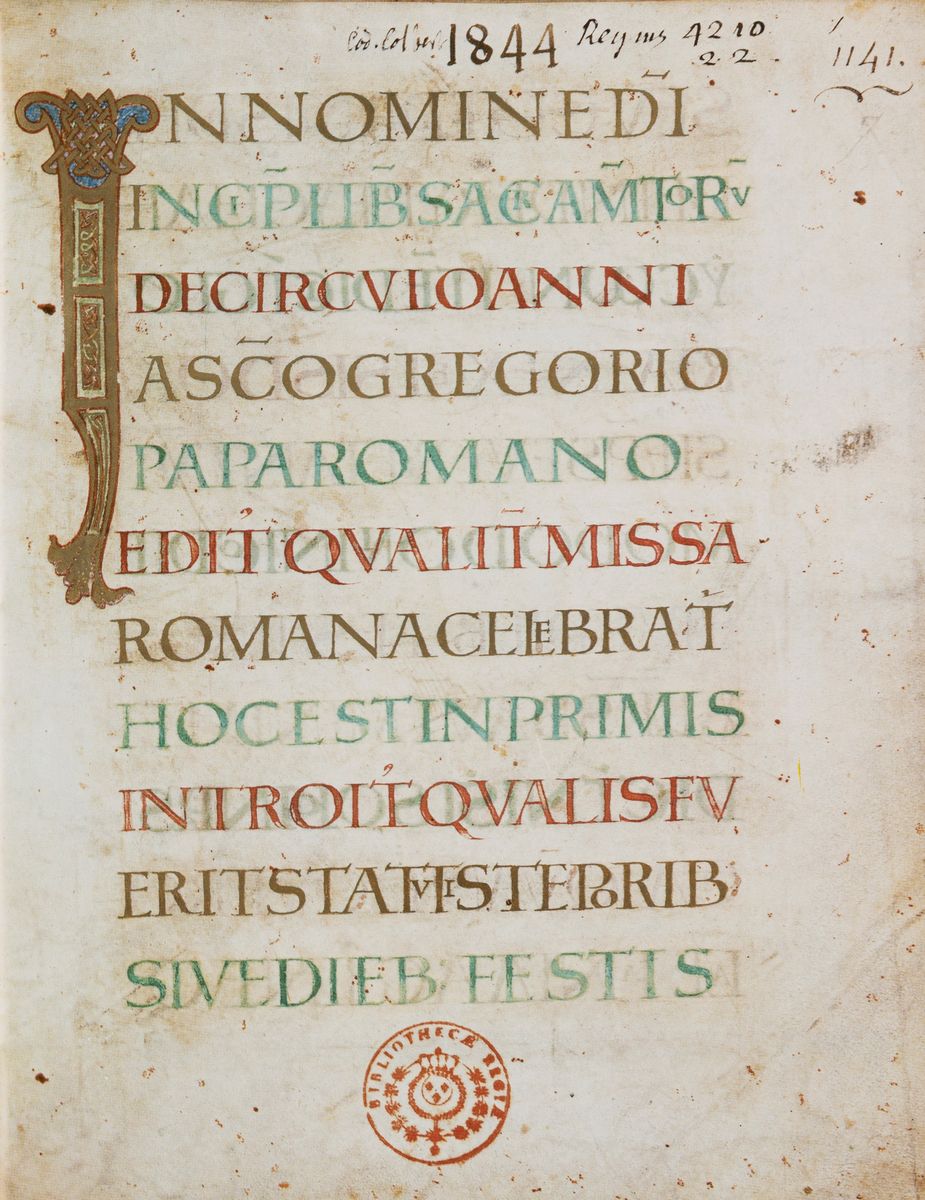 Cod. Colbert 1844 Regius 4210
2.2.
1141.
IN NOMINE DN̄I
INCIP̄ LIB̄ SACRAM̄TORV̄
DE CIRCVLO ANNI
A SC̄O GREGORIO
PAPA ROMANO
EDIT' QVALIT̄ MISSA
ROMANA CELEBRAT̄
HOC EST INPRIMIS
INTROIT' QVALIS FV
ERIT STATVTIS TEPORIB
SIVE DIEB· FESTIS
BIBLIOTHECÆ REGIÆ